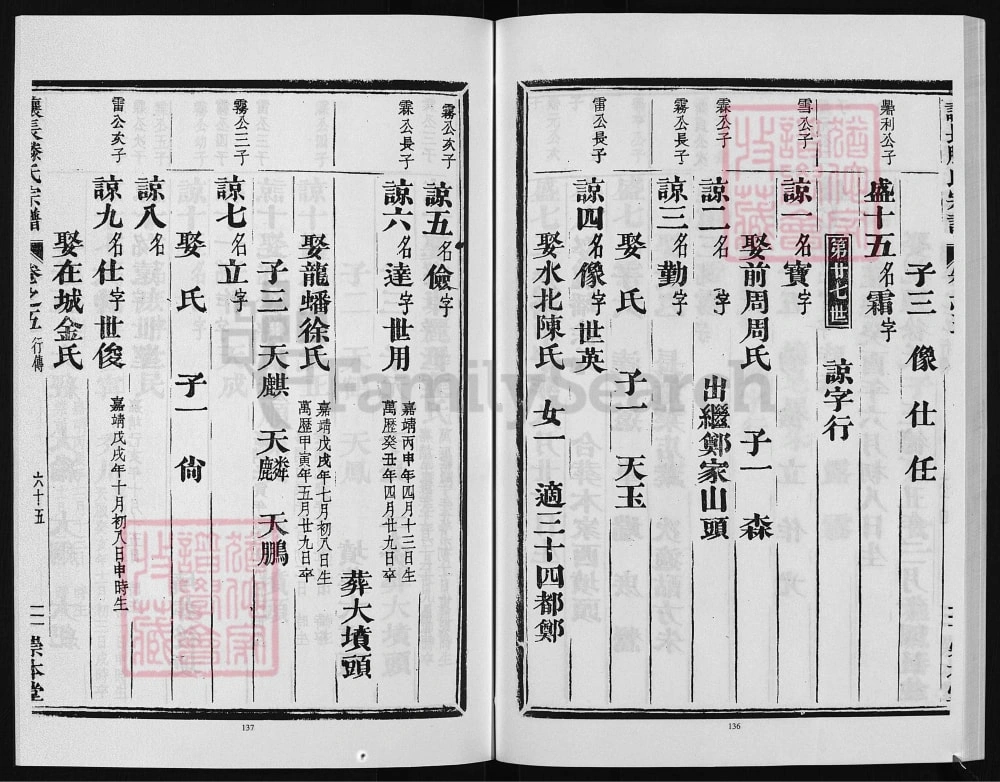 子三 像 仕 任
鼎利公子
盛十五名霜字
第廿七世 諒字行
雪公子
諒一名寶字
娶前周周氏 子一 森
霖公子
諒二名 字 出繼鄭家山頭
霧公長子
諒三名勤字
娶 氏 子一 天玉
雷公長子
諒四名像字世英
娶水北陳氏 女一 適三十四都鄭
136
霧公次子
諒五名儉字
霖公長子
諒六名達字世用
嘉靖丙申年四月十三日生
萬歷癸丑年四月廿九日卒
葬大墳頭
娶龍蟠徐氏
嘉靖戊戌年七月初八日生
萬歷甲寅年五月廿九日卒
子三 天麒 天麟 天鵬
霧公三子
諒七名立字
娶 氏 子一 尙
諒八名
雷公次子
諒九名仕字世俊
嘉靖戊戌年十月初八日申時生
娶在城金氏
氏宗譜 卷之五 行傳 六十五 崇本堂
137
FamilySearch